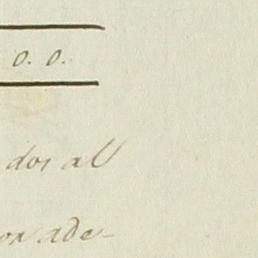 0. 0.
dos al
on ade-